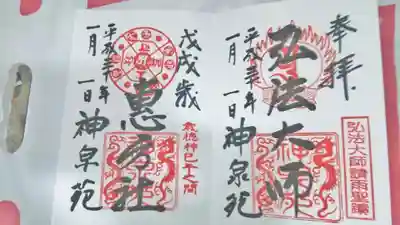 奉拝
弘法大師
弘法大師請雨聖蹟
平成三十年
一月一日
神泉苑
戊戌歳
恵方社
歳徳神巳午之間
平成三十年
一月一日
神泉苑